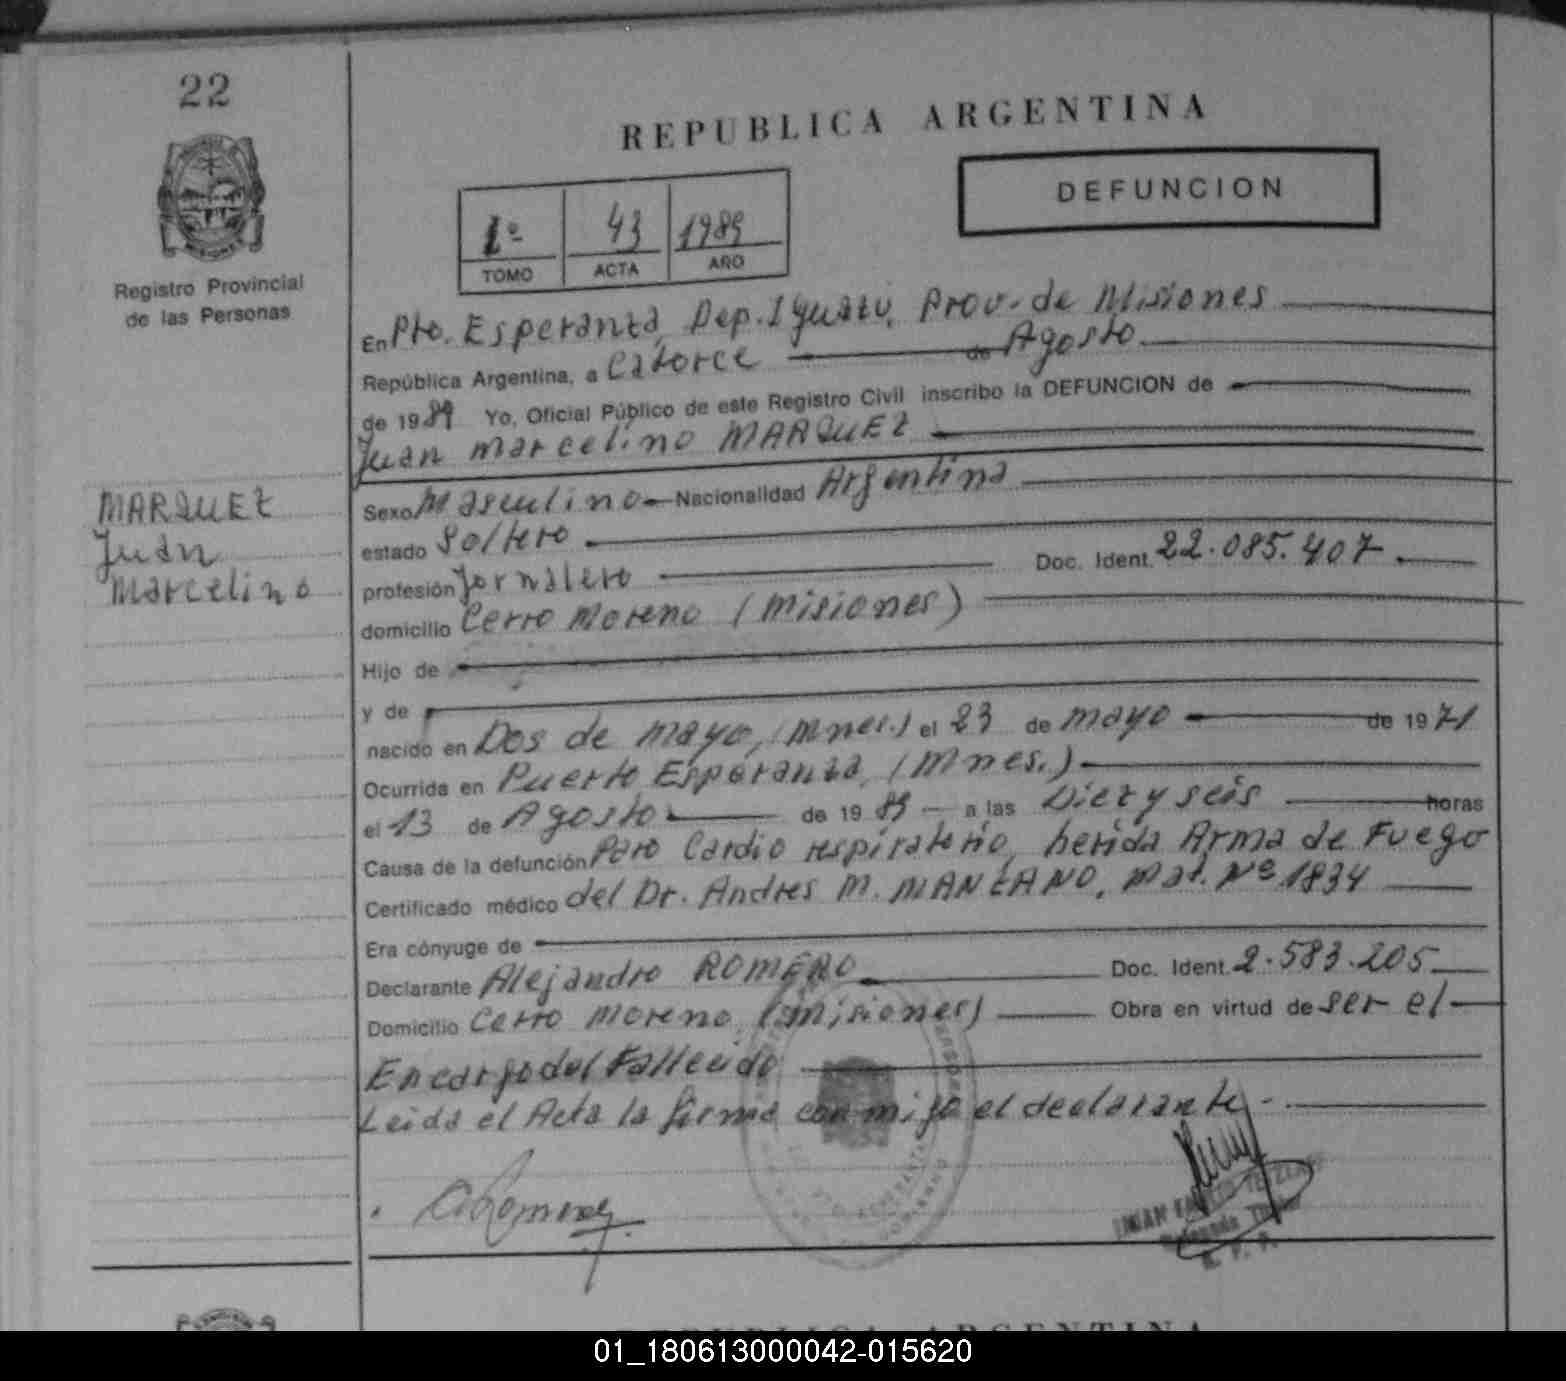 22
REPUBLICA ARGENTINA
DEFUNCION
1º 43 1989
TOMO ACTA AÑO
Registro Provincial
de las Personas
En Pto. Esperanza, Dep. Iguazú, Prov. de Misiones
República Argentina, a Catorce de Agosto
de 1989 Yo, Oficial Público de este Registro Civil inscribo la DEFUNCION de
Juan Marcelino MARQUEZ
MARQUEZ
Juan
Marcelino
Sexo Masculino Nacionalidad Argentina
estado Soltero
profesión Jornalero Doc. Ident. 22.085.407
domicilio Cerro Moreno (Misiones)
Hijo de
y de
nacido en Dos de Mayo, (Mnes.) el 23 de Mayo de 1971
Ocurrida en Puerto Esperanza, (Mnes.)
el 13 de Agosto de 1989 a las Diez y seis horas
Causa de la defunción Paro Cardio respiratorio, herida Arma de Fuego
Certificado médico del Dr. Andres M. MANZANO, Mat. Nº 1834
Era cónyuge de
Declarante Alejandro ROMERO Doc. Ident. 2.583.205
Domicilio Cerro Moreno, (Misiones) Obra en virtud de ser el
Encargo del Fallecido
Leida el Acta la firma con migo el declarante
REPUBLICA ARGENTINA
01_180613000042-015620